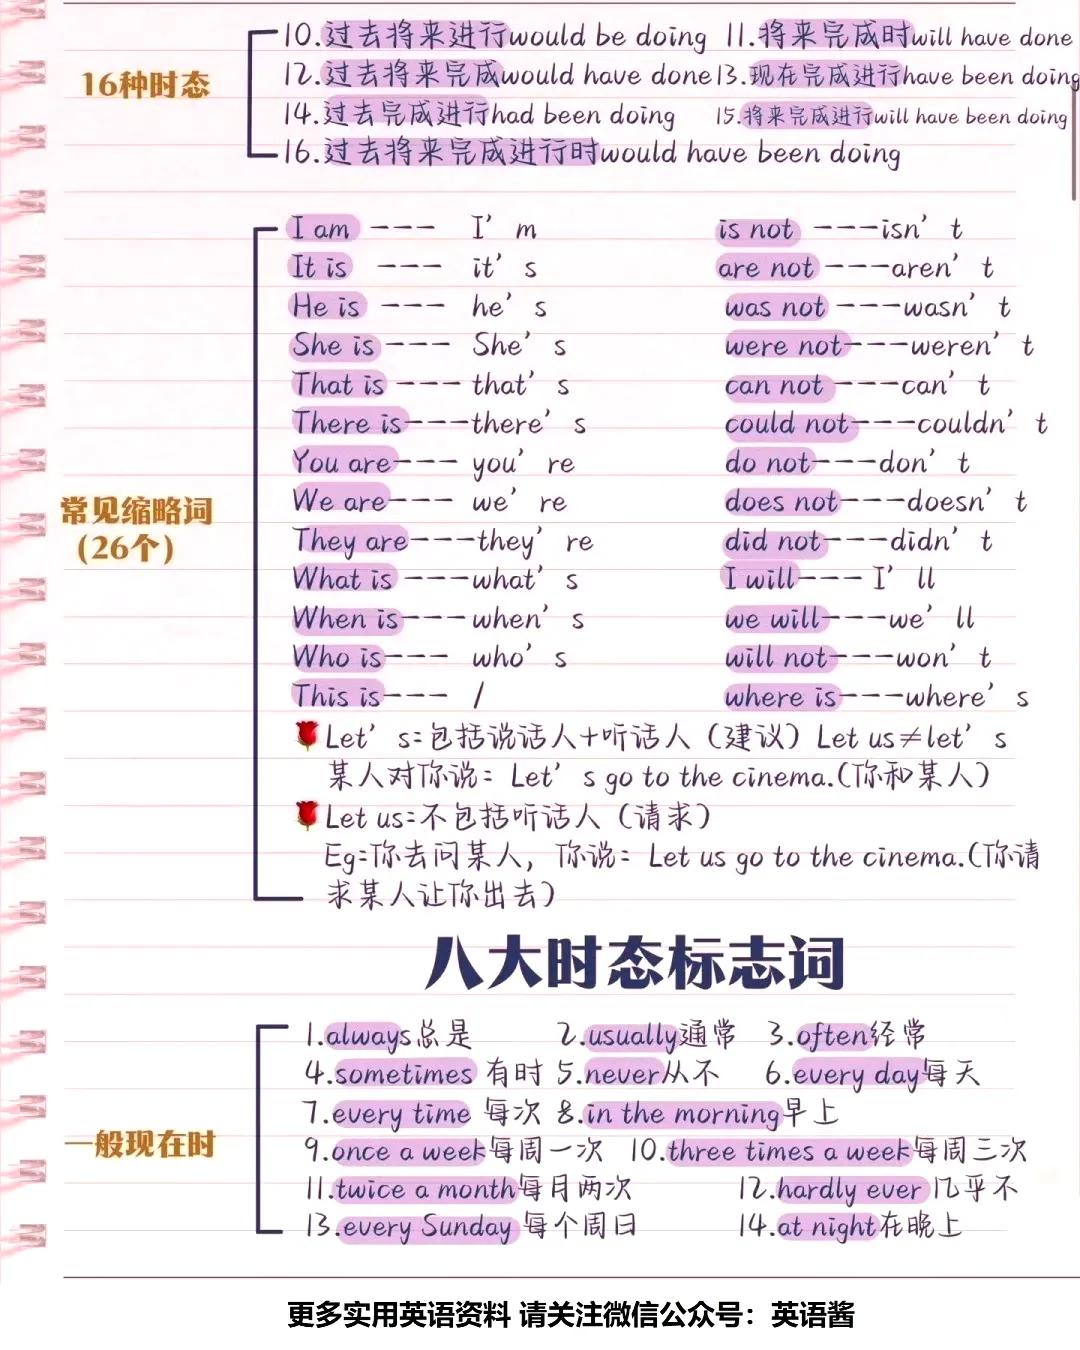 16种时态
10.过去将来进行would be doing 11.将来完成时will have done
12.过去将来完成would have done 13.现在完成进行have been doing
14.过去完成进行had been doing 15.将来完成进行will have been doing
16.过去将来完成进行时would have been doing
常见缩略词
(26个)
I am --- I'm is not ---isn't
It is --- it's are not ---aren't
He is --- he's was not ---wasn't
She is --- She's were not---weren't
That is --- that's can not ---can't
There is---there's could not---couldn't
You are--- you're do not---don't
We are--- we're does not---doesn't
They are---they're did not---didn't
What is ---what's I will--- I'll
When is---when's we will---we'll
Who is--- who's will not---won't
This is--- / where is---where's
Let's:包括说话人+听话人（建议）Let us≠let's
某人对你说：Let's go to the cinema.(你和某人)
Let us:不包括听话人（请求）
Eg:你去问某人，你说：Let us go to the cinema.(你请
求某人让你出去)
八大时态标志词
一般现在时
1.always总是 2.usually通常 3.often经常
4.sometimes 有时 5.never从不 6.every day每天
7.every time 每次 8.in the morning早上
9.once a week每周一次 10.three times a week每周三次
11.twice a month每月两次 12.hardly ever 几乎不
13.every Sunday 每个周日 14.at night在晚上
更多实用英语资料 请关注微信公众号：英语酱